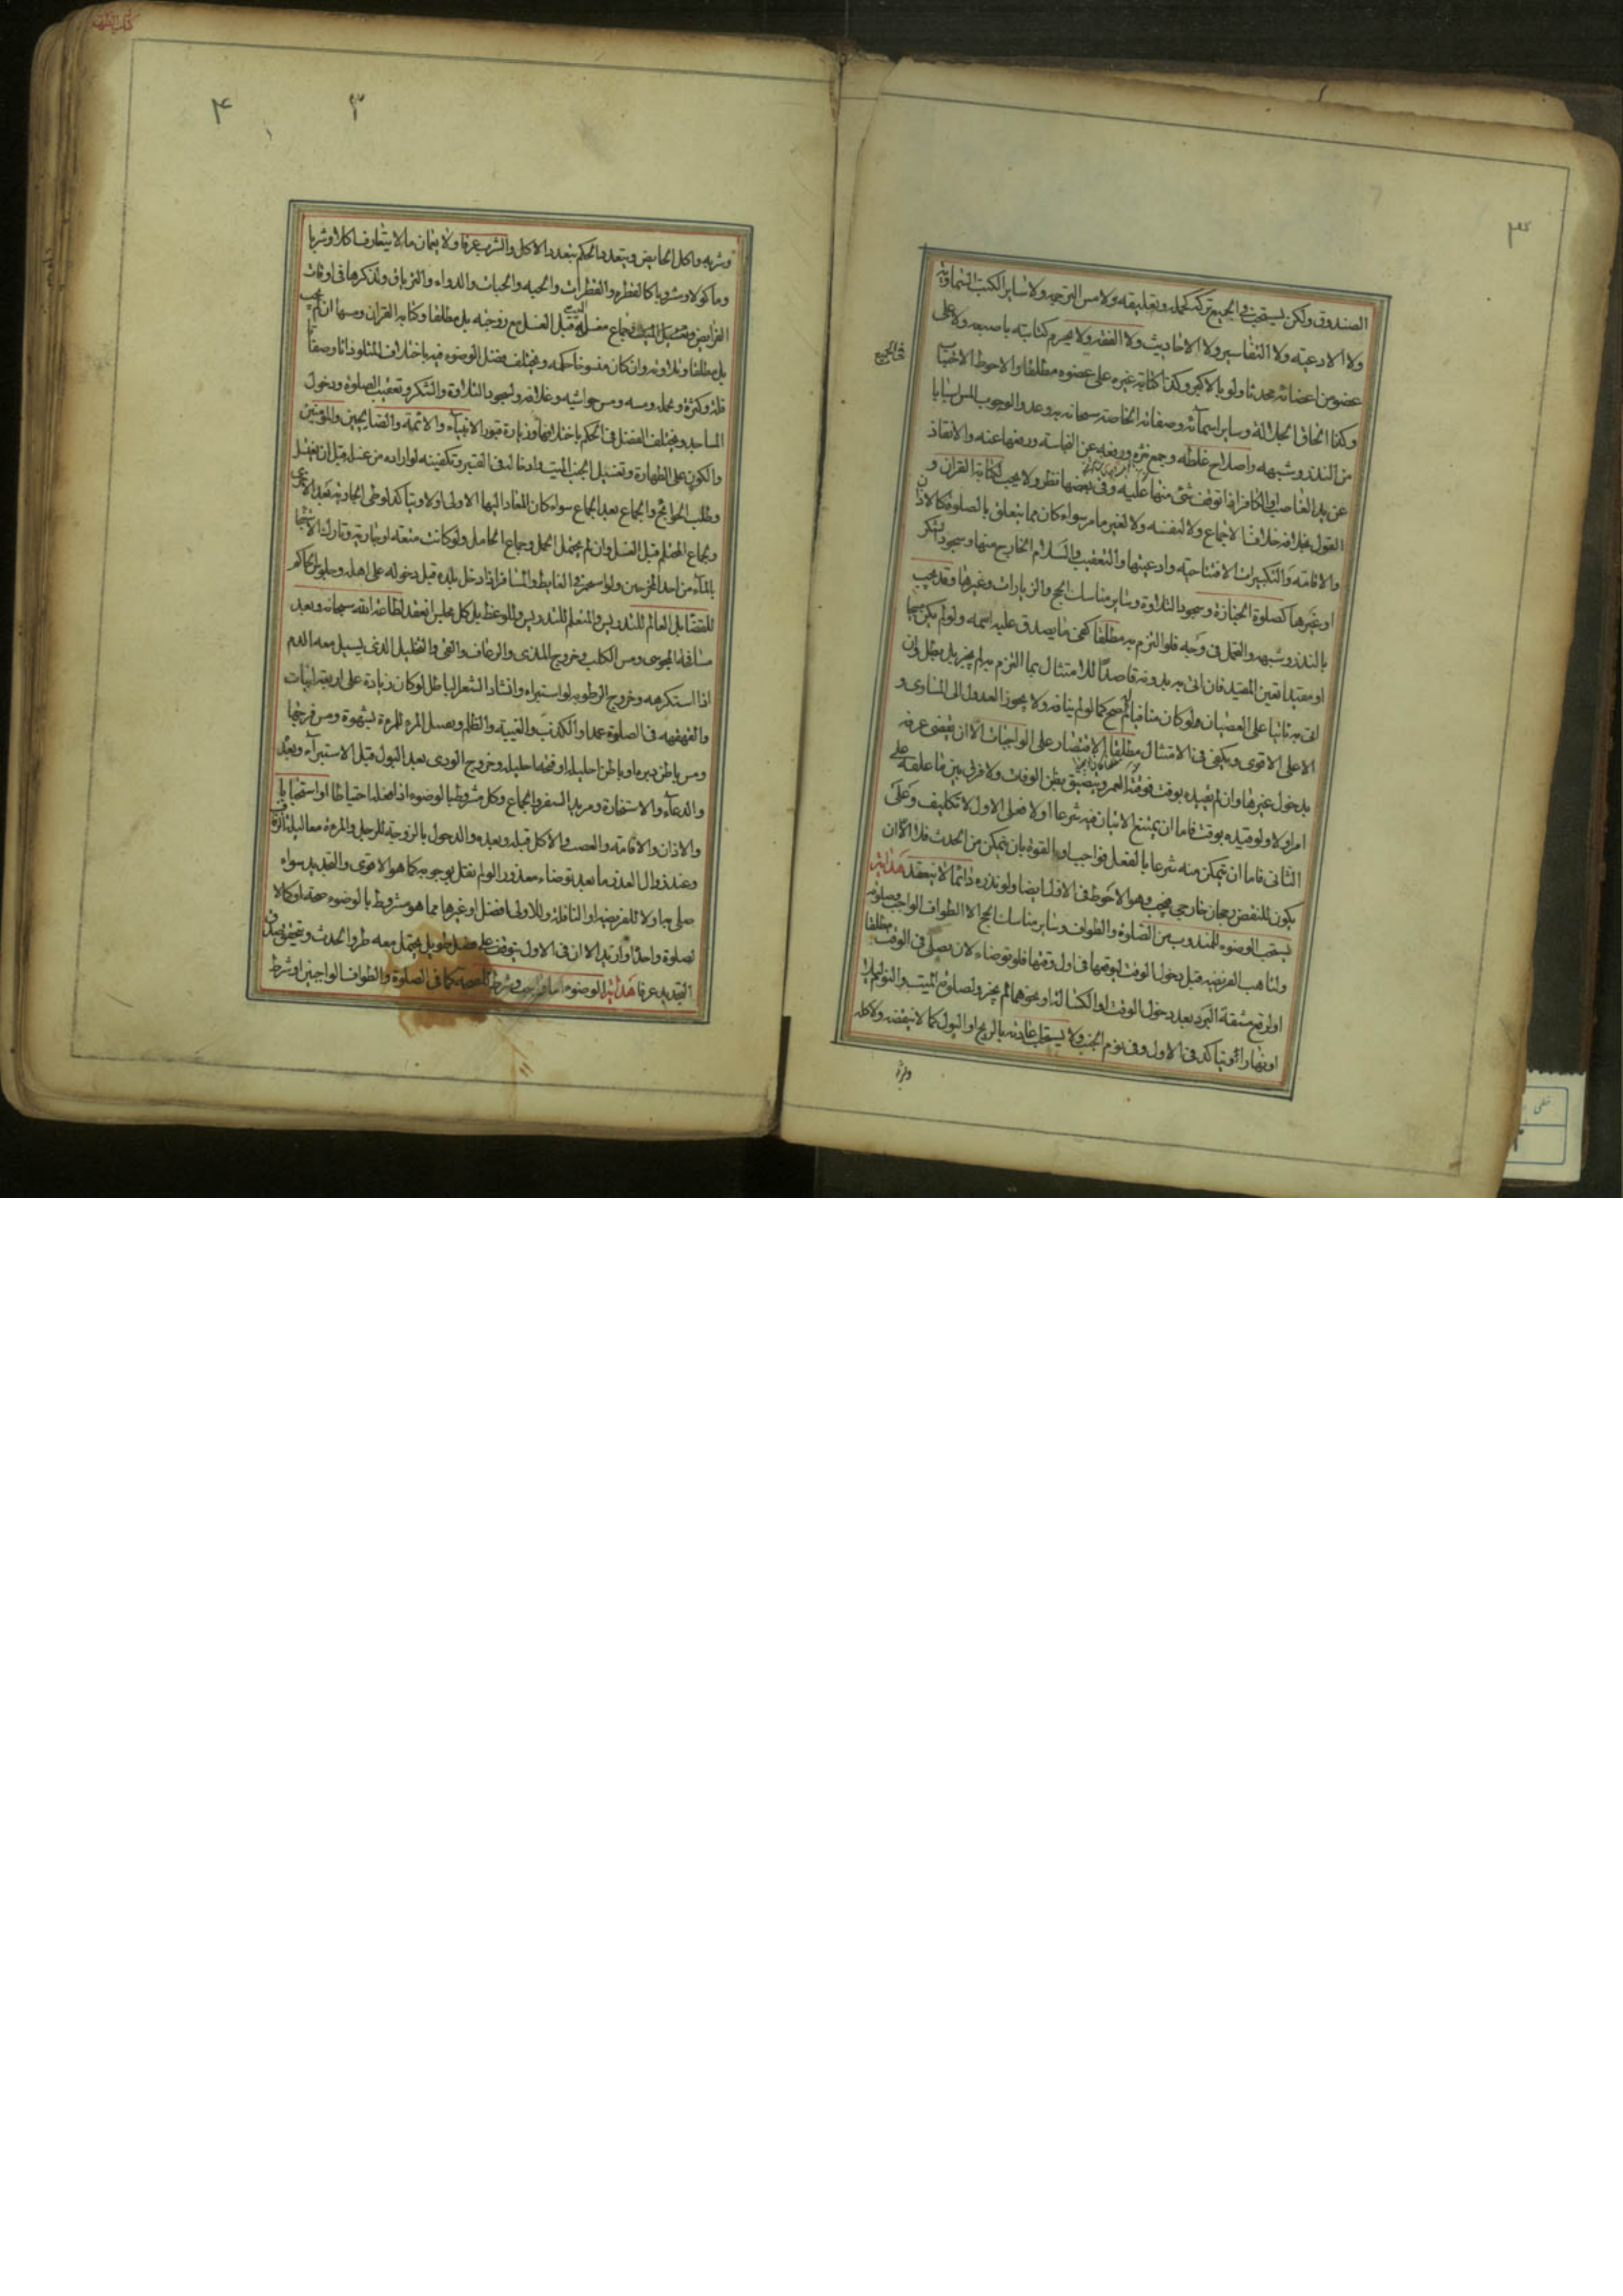 ٣
الصندوق ولكن يستحب في الجميع تركه كحمله وتعليقه ولا مس الترجمه ولا سائر الكتب السماويه
ولا الادعيه ولا التفاسير ولا الاحاديث ولا الفقه ولا يحرم كتابته باصبعه ولا على
في الجميع
عضو من اعضائه محدثا ولو بالاكبر وكذا كتابة غيره على عضوه مطلقا والاحوط الاجتناب
وكذا الحاق الجلالة وسائر اسمائه وصفاته الخاصه سبحانه به وعد والوجوب المس اسبابا
من النذر وشبهه واصلاح غلطه وجمع نثره ورفعه عن النجاسته ورفعها عنه والانقاذ
عن يد الغاصب او الكافر اذا توقف شئ منها عليه وفي بعضها نظر ولا يجب لكتابة القران و
القول بخلافه خلاف الاجماع ولا لنفسه ولا لغير ما مر سواء كان مما يتعلق بالصلوة كالاذان
والاقامته والتكبيرات الافتتاحيه وادعيتها والتعقيب والسلام الخارج منها وسجود الشكر
او غيرها كصلوة الجنازة وسجود التلاوة وسائر مناسك الحج والزيارات وغيرها وقد يجب
بالنذر وشبهه والتحمل في وجه فلو التزم به مطلقا كفى ما يصدق عليه اسمه ولو لم يكن مبيحا
او مقيدا تعين المقيد فان اتى به بدونه قاصدا للامتثال بما التزم به لم يجز بل بطل وان
اتى به ثانيا على العصيان ولو كان منافيا له صح كما لو لم ينافه ولا يجوز العدول الى المساوى و
الاعلى الاقوى ويكفي في الامتثال مطلقا الاقتصار على الواجبات الا ان يقضى عرفه
بدخول غيرها وان لم يقيده بوقت فوقته العمر ويتضيق بظن الوفات ولا فرق بين ما علقه على
امر اولا ولو قيده بوقت فاما ان يمتنع الاتيان فيه شرعا اولا فعلى الاول لا تكليف وعلى
الثاني فاما ان يتمكن منه شرعا بالفعل فواجب او بالقوه بان يتمكن من الحدث فلا الا ان
يكون للنقض رجحان خارجي فيجب وهو الاحوط في الاول ايضا ولو نذره دائما لا ينعقد هداية
يستحب الوضوء للمندوب من الصلوة والطواف وسائر مناسك الحج الا الطواف الواجب وصلوته
ولتاهب الفريضه قبل دخول الوقت ليوقعها في اول وقتها فلو توضاء لان يصلي في الوقت مطلقا
او لرفع مشقة البرد بعد دخول الوقت او الكسالة او نحوهما لم يجز ولصلوة الميت والنوم ليلا
او نهارا ويتاكد في الاول وفي نوم الجنب ولا يستحب اعادته بالريح او البول كما لا ينقضه ولاكله
وشربه
٤
٣
وشربه واكل الحايض ويتعدد الحكم بتعدد الاكل والشرب عرفا ولا يعمان ما لا يتعارف اكلا وشربا
وماكولا ومشروبا كالقطره والقطرات والحبه والحبات والدواء والترياق ولذكرها في اوقات
الفرايض وتغسيل الميت وجماع مغسله قبل الغسل مع زوجته بل مطلقا وكتابه القران ومسها ان لم يجب
بل مطلقا وتلاوته وان كان منسوخا حكمه ويختلف فضل الوضوء فيه باختلاف المتلو ذاتا وصفا
قلة وكثرة وحمله ومسه ومس حواشيه وغلافه ولسجود التلاوة والشكر وتعقيب الصلوة ودخول
المساجد ويختلف الفضل في الحكم باختلافها وزيارة قبور الانبياء والائمة والصالحين والمؤمنين
والكون على الطهارة وتغسيل الجنب الميت وادخاله في القبر وتكفينه لو اراده من غسله قبل ان يغتسل
وطلب الحوائج والجماع بعد الجماع سواء كان المعاد اليها الاولى اولا ويتاكد لوطى الجاريه بعد الاخرى
وجماع المحتلم قبل الغسل وان لم يحتمل الحمل وجماع الحامل ولو كانت متعة او جارية وتارك الاستنجاء
بالماء من احد المخرجين ولو استجمر في الغايط والمسافر اذا دخل بلده قبل دخوله على اهله وجلوس الحاكم
للقضا بل العالم للتدريس والمتعلم للتدريس وللوعظ بل كل مجلس انعقد لطاعة الله سبحانه وبعد
مصافة المجوسى ومس الكلب وخروج المذى والرعاف والقئ والتخليل الذى يسيل معه الدم
اذا استكرهه وخروج الرطوبه لو استبراء وانشاد الشعر الباطل لو كان زيادة على اربعة ابيات
والقهقهه في الصلوة عمدا والكذب والغيبة والظلم وبغسل المرء للمرءة بشهوة ومس فرجها
ومس باطن دبره او باطن احليله او فتحه احليله وخروج الودى بعد البول قبل الاستبراء وبعده
والدعاء والاستخارة ومريد السفر والجماع وكل مشروط بالوضوء اذا فعله احتياطا او استحبابا
والاذان والاقامته والعصب والاكل قبله وبعده والدخول بالزوجة للرجل والمرءة معا ليلة الزفاف
وعند زوال العذر ما بعد توضاء معذورا لو لم نقل بوجوبه كما هو الاقوى والتجديد سواء
صلى بها ولا للفريضه او النافلة وللاولى افضل او غيرها مما هو مشروط بالوضوء صحة او كمالا
لصلوة واحدة او ازيد الا ان في الاول يتوقف على فصل طويل يحتمل معه طرو الحدث ويتحقق بصدق
التجديد عرفا هداية الوضوء اما واجب وشرط للصحة كما في الصلوة والطواف الواجبين او شرط